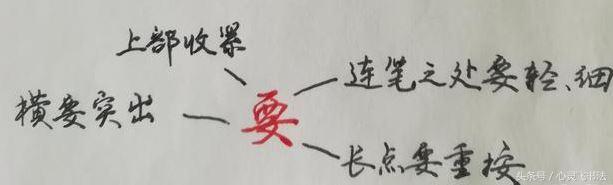 上部收紧
连笔之处要轻、细
横要突出
要
长点要重按
头条号／心灵飞书法